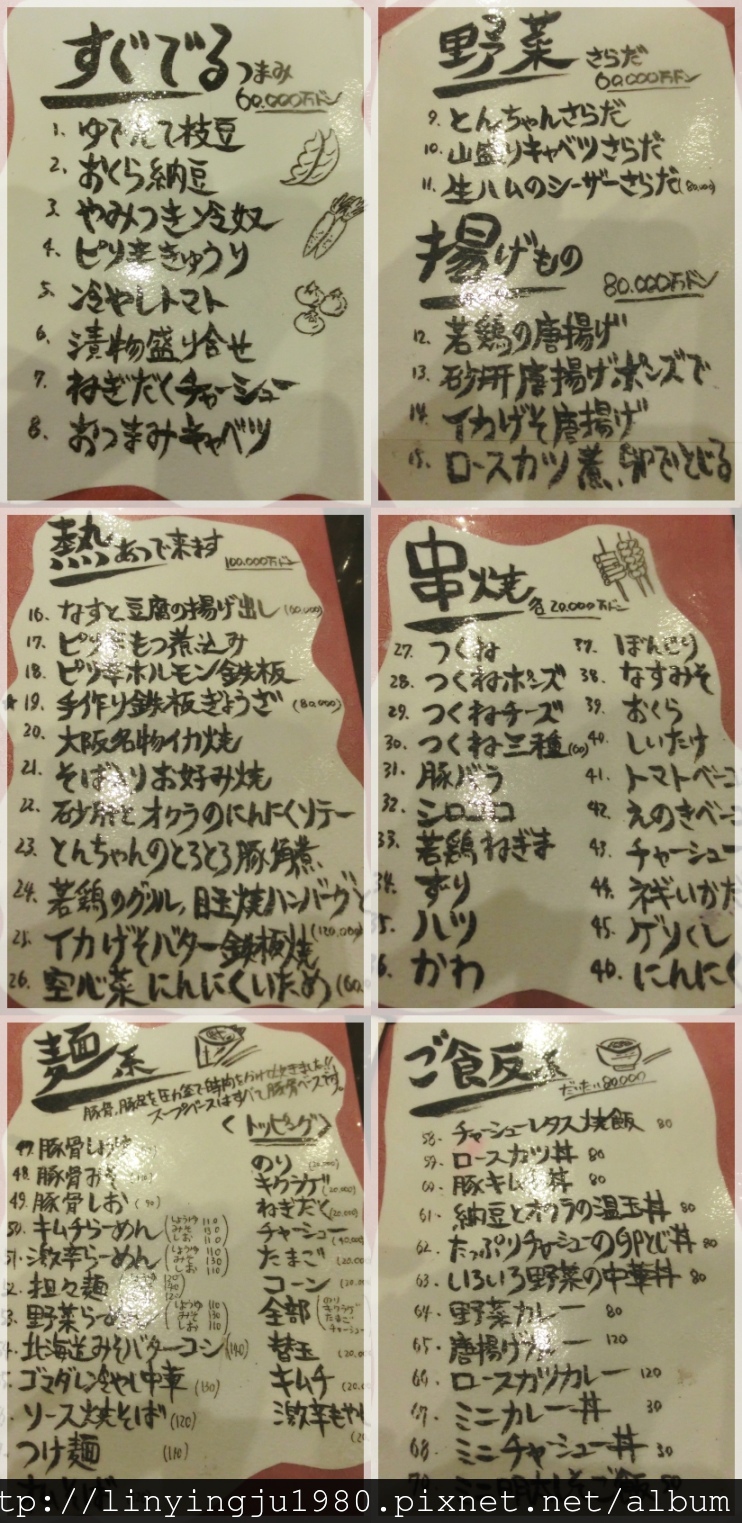 すぐでる つまみ
60.000万ドン
1. ゆでたて枝豆
2. おくら納豆
3. やみつき冷奴
4. ピリ辛きゅうり
5. 冷やしトマト
6. 漬物盛り合せ
7. ねぎだくチャーシュー
8. おつまみキャベツ
野菜 さらだ
60.000万ドン
9. とんちゃんさらだ
10. 山盛りキャベツさらだ
11. 生ハムのシーザーさらだ(80.000)
揚げもの
80.000万ドン
12. 若鶏の唐揚げ
13. 砂肝唐揚げポンズで
14. イカげそ唐揚げ
15. ロースカツ煮、卵でとじる
熱 あつで来ます
100.000万ドン
16. なすと豆腐の揚げ出し(60.000)
17. ピリ辛もつ煮込み
18. ピリ辛ホルモン鉄板
★19. 手作り鉄板ぎょうざ (80.000)
20. 大阪名物イカ焼
21. そば入りお好み焼
22. 砂肝とオクラのにんにくソテー
23. とんちゃんのとろとろ豚角煮
24. 若鶏のグリル、目玉焼ハンバーグ
25. イカげそバター鉄板焼(120.000)
26. 空心菜にんにくいため(60.0
串焼 各20.000万ドン
27. つくね
28. つくねポンズ
29. つくねチーズ
30. つくね三種(60)
31. 豚バラ
32. シロコロ
33. 若鶏ねぎま
34. ずり
35. ハツ
36. かわ
37. ぼんじり
38. なすみそ
39. おくら
40. しいたけ
41. トマトベーコ
42. えのきベーコ
43. チャーシュー
44. ネギいかだ
45. ゲソくし
46. にんにく
麺系
豚骨、豚足を圧力釜で時間をかけて炊きました!!
スープベースはすべて豚骨ベースです。
47. 豚骨しょうゆ
48. 豚骨みそ
49. 豚骨しお (90)
50. キムチらーめん (しょうゆ 110 みそ 130 しお 110)
51. 激辛らーめん (しょうゆ 110 みそ 130 しお 110)
52. 担々麺
53. 野菜らーめん (しょうゆ 110 みそ 130 しお 110)
54. 北海道みそバターコーン(140)
ゴマダレ冷やし中華 (130)
ソース焼そば (120)
つけ麺 (110)
<トッピング>
のり (20.000)
キクラゲ (20.000)
ねぎだく (20.000)
チャーシュー (40.000)
たまご (20.000
コーン (20.000
全部 (のり キクラゲ たまご チャーシュー
替玉 (20.00
キムチ (20.0
激辛もやし
ご食反系
だいたい80.000
58. チャーシューレタス焼飯 80
59. ロースカツ丼 80
60. 豚キムチ丼 80
61. 納豆とオクラの温玉丼 80
62. たっぷりチャーシューの卵とじ丼 80
63. いろいろ野菜の中華丼 80
64. 野菜カレー 80
65. 唐揚げカレー 120
66. ロースカツカレー 120
67. ミニカレー丼 30
68. ミニチャーシュー丼 30
tp://linyingju1980.pixnet.net/album